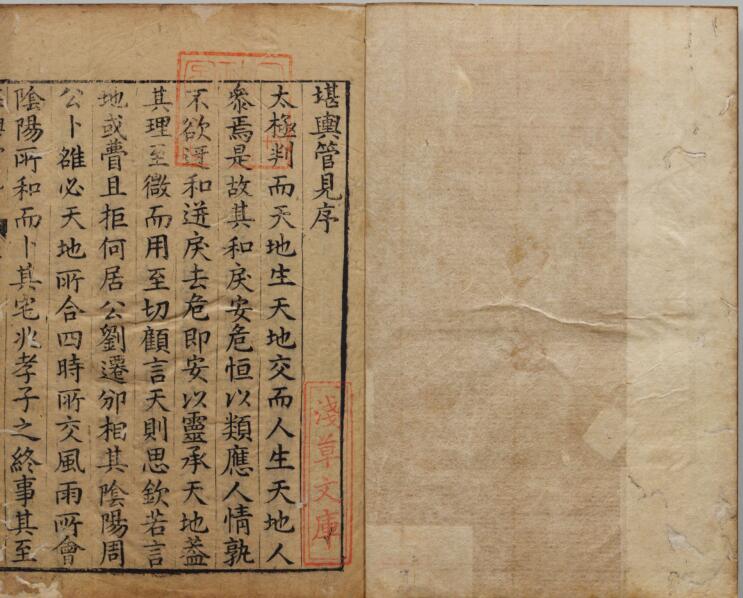 堪輿管見序
太極判而天地生天地交而人生天地人
叅焉是故其和戾安危恒以類應人情孰
不欲迓和迸戾去危即安以靈承天地葢
其理至微而用至切顧言天則思欽若言
地或瞢且拒何居公劉遷邠相其陰陽周
公卜雒必天地所合四時所交風雨所會
陰陽所和而卜其宅兆孝子之終事其至
淺草文庫